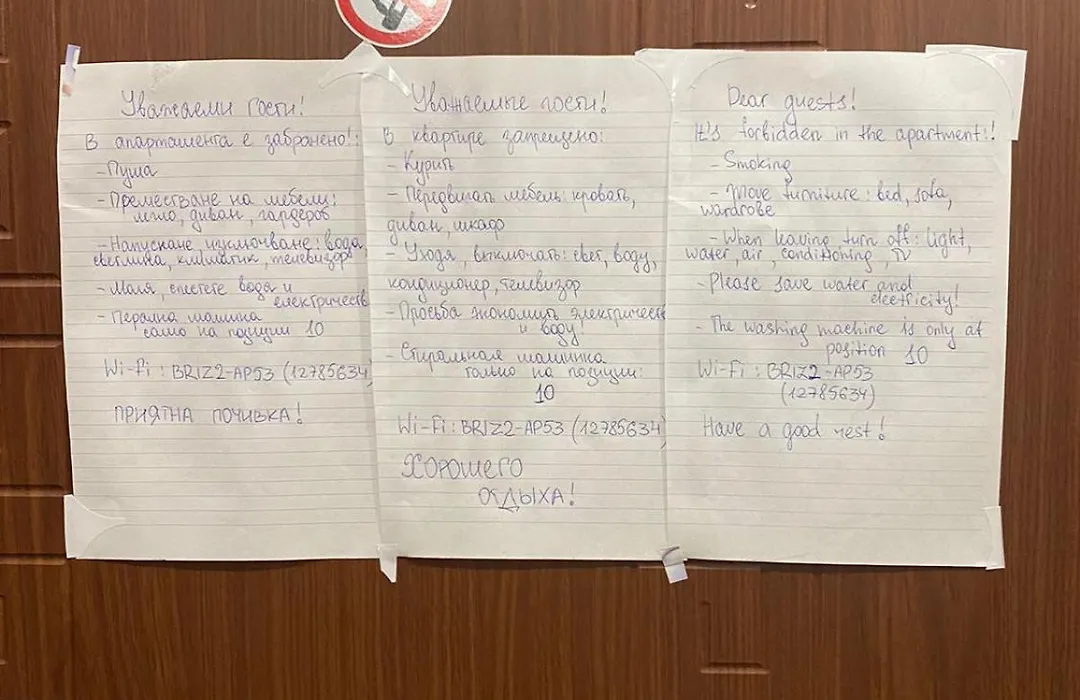 Уважаеми Гости!
В апартамента е забранено!:
- Пуша
- Преместване на мебели:
легло, диван, гардероб
- Напускане изключване: вода,
светлина, климатик, телевизор
- Моля, спестете вода и
електричеств
- Перална машина
само на позиции 10
Wi-Fi: BRIZ2-AP53 (12785634)
ПРИЯТНА ПОЧИВКА!
Уважаемые гости!
В квартире запрещено:
- Курить
- Передвигать мебель: кровать,
диван, шкаф
- Уходя, выключать: свет, воду,
кондиционер, телевизор
- Просьба экономить электричеств
и воду!
- Стиральная машинка
только на позиции:
10
Wi-Fi: BRIZ2-AP53 (12785634)
ХОРОШЕГО
ОТДЫХА!
Dear guests!
It's forbidden in the apartment!:
- Smoking
- Move furniture: bed, sofa,
wardrobe
- When leaving turn off: light,
water, air, conditioning, TV
- Please save water and
electricity!
- The washing machine is only at
position 10
Wi-Fi: BRIZ2-AP53
(12785634)
Have a good rest!